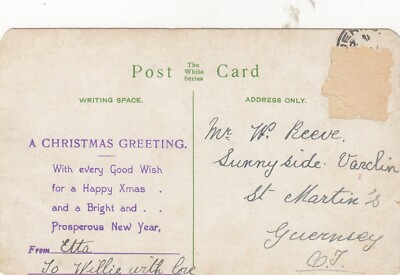 Post The White Series Card
WRITING SPACE.
ADDRESS ONLY.
A CHRISTMAS GREETING.
With every Good Wish
for a Happy Xmas . .
and a Bright and . .
Prosperous New Year,
From Etta
To Willie with love
Mr W. Reeve.
Sunnyside. Varclin
St Martin's
Guernsey
C.I